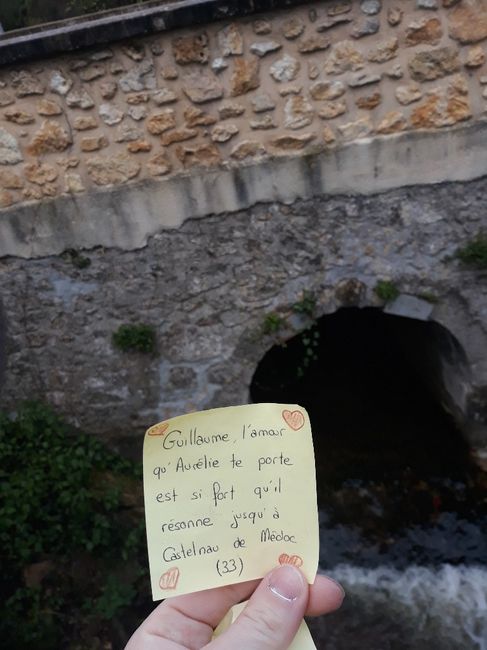 Guillaume, l'amour
qu'Aurélie te porte
est si fort qu'il
résonne jusqu'à
Castelnau de Médoc
(33)